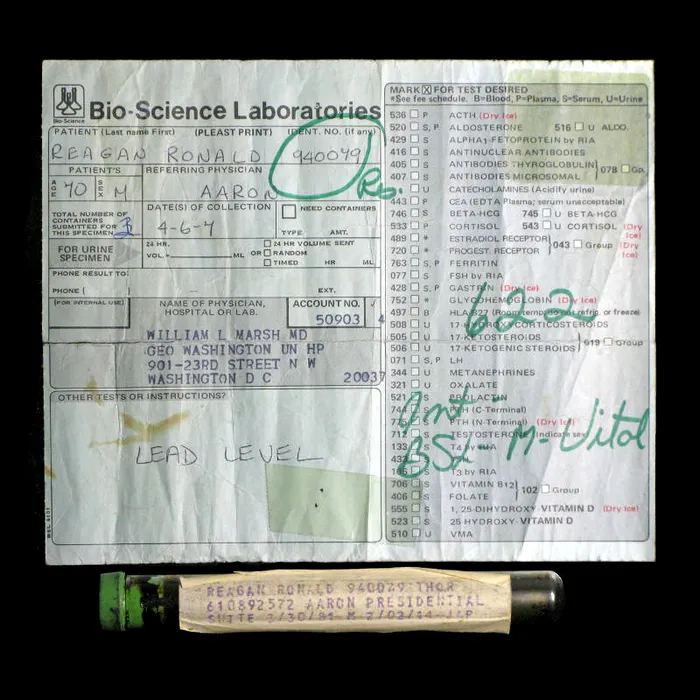 Bio-Science
Bio-Science Laboratories
PATIENT (Last name First) (PLEASE PRINT) IDENT. NO. (if any)
REAGAN RONALD 940079
Rs.
PATIENT'S REFERRING PHYSICIAN
AGE 70 SEX M AARON
TOTAL NUMBER OF CONTAINERS SUBMITTED FOR THIS SPECIMEN 3
DATE(S) OF COLLECTION
4-6-
NEED CONTAINERS
TYPE AMT.
FOR URINE SPECIMEN
24 HR. VOL. ML OR
24 HR VOLUME SENT
RANDOM
TIMED HR ML
PHONE RESULT TO:
PHONE ( ) EXT.
(FOR INTERNAL USE)
NAME OF PHYSICIAN, HOSPITAL OR LAB.
ACCOUNT NO. ✓
50903 4
WILLIAM L MARSH MD
GEO WASHINGTON UN HP
901-23RD STREET N W
WASHINGTON D C 20037
OTHER TESTS OR INSTRUCTIONS?
LEAD LEVEL
MARK X FOR TEST DESIRED
*See fee schedule. B=Blood, P=Plasma, S=Serum, U=Urine
636 P ACTH (Dry Ice)
520 S, P ALDOSTERONE 516 U ALDO.
429 S ALPHA1-FETOPROTEIN by RIA
416 S ANTINUCLEAR ANTIBODIES
405 S ANTIBODIES THYROGLOBULIN
407 S ANTIBODIES MICROSOMAL
078 Gp.
U CATECHOLAMINES (Acidify urine)
443 P CEA (EDTA Plasma; serum unacceptable)
746 S BETA-HCG 745 U BETA-HCG
533 P CORTISOL 543 U CORTISOL (Dry Ice)
489 * ESTRADIOL RECEPTOR
720 * PROGEST. RECEPTOR
043 Group (Dry Ice)
763 S, P FERRITIN
077 S FSH by RIA
428 S, P GASTRIN (Dry Ice)
752 * GLYCOHEMOGLOBIN (Dry Ice)
497 B HLA-B27 (Room temp
refrig. or freeze)
508 U 17-HYDROXYCORTICOSTEROIDS
505 U 17-KETOSTEROIDS
506 U 17-KETOGENIC STEROIDS
619 Group
622
071 S, P LH
344 U METANEPHRINES
321 U OXALATE
521 S PROLACTIN
744 S PTH (C-Terminal)
S PTH (N-Terminal) (Dry Ice)
712 S TESTOSTERONE (Indicate sex)
133 T4 by RIA
T3 by RIA
M-Vital
706 S VITAMIN B12
406 S FOLATE
102 Group
555 S 1, 25 DIHYDROXY VITAMIN D (Dry Ice)
523 S 25 HYDROXY-VITAMIN D
510 U VMA
REAGAN RONALD 940079 THOR
610892572 AARON PRESIDENTIAL
SUITE 3/30/81 M